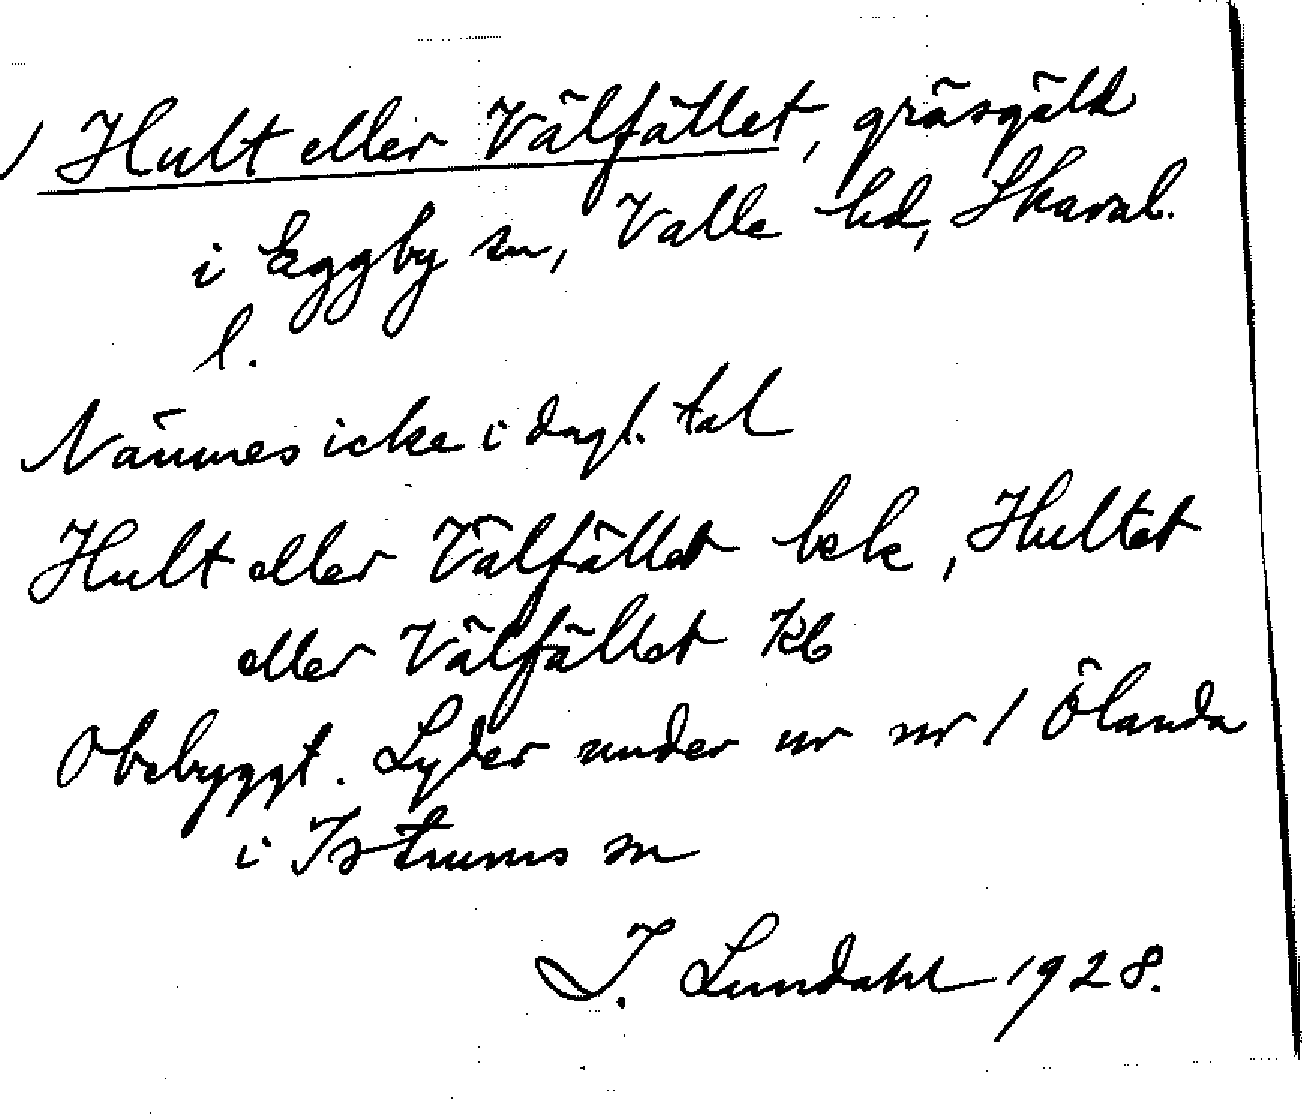 / Hult eller Välfället, gräsgäld
i Eggby sn, Valle hd, Skarab.
l.
Nämnes icke i dagl. tal
Hult eller Välfället bek, Hultet
eller Välfället Kb
Obebyggt. Lyder under ur nr 1 Ölanda
i Istrums sn
I. Lundahl 1928.